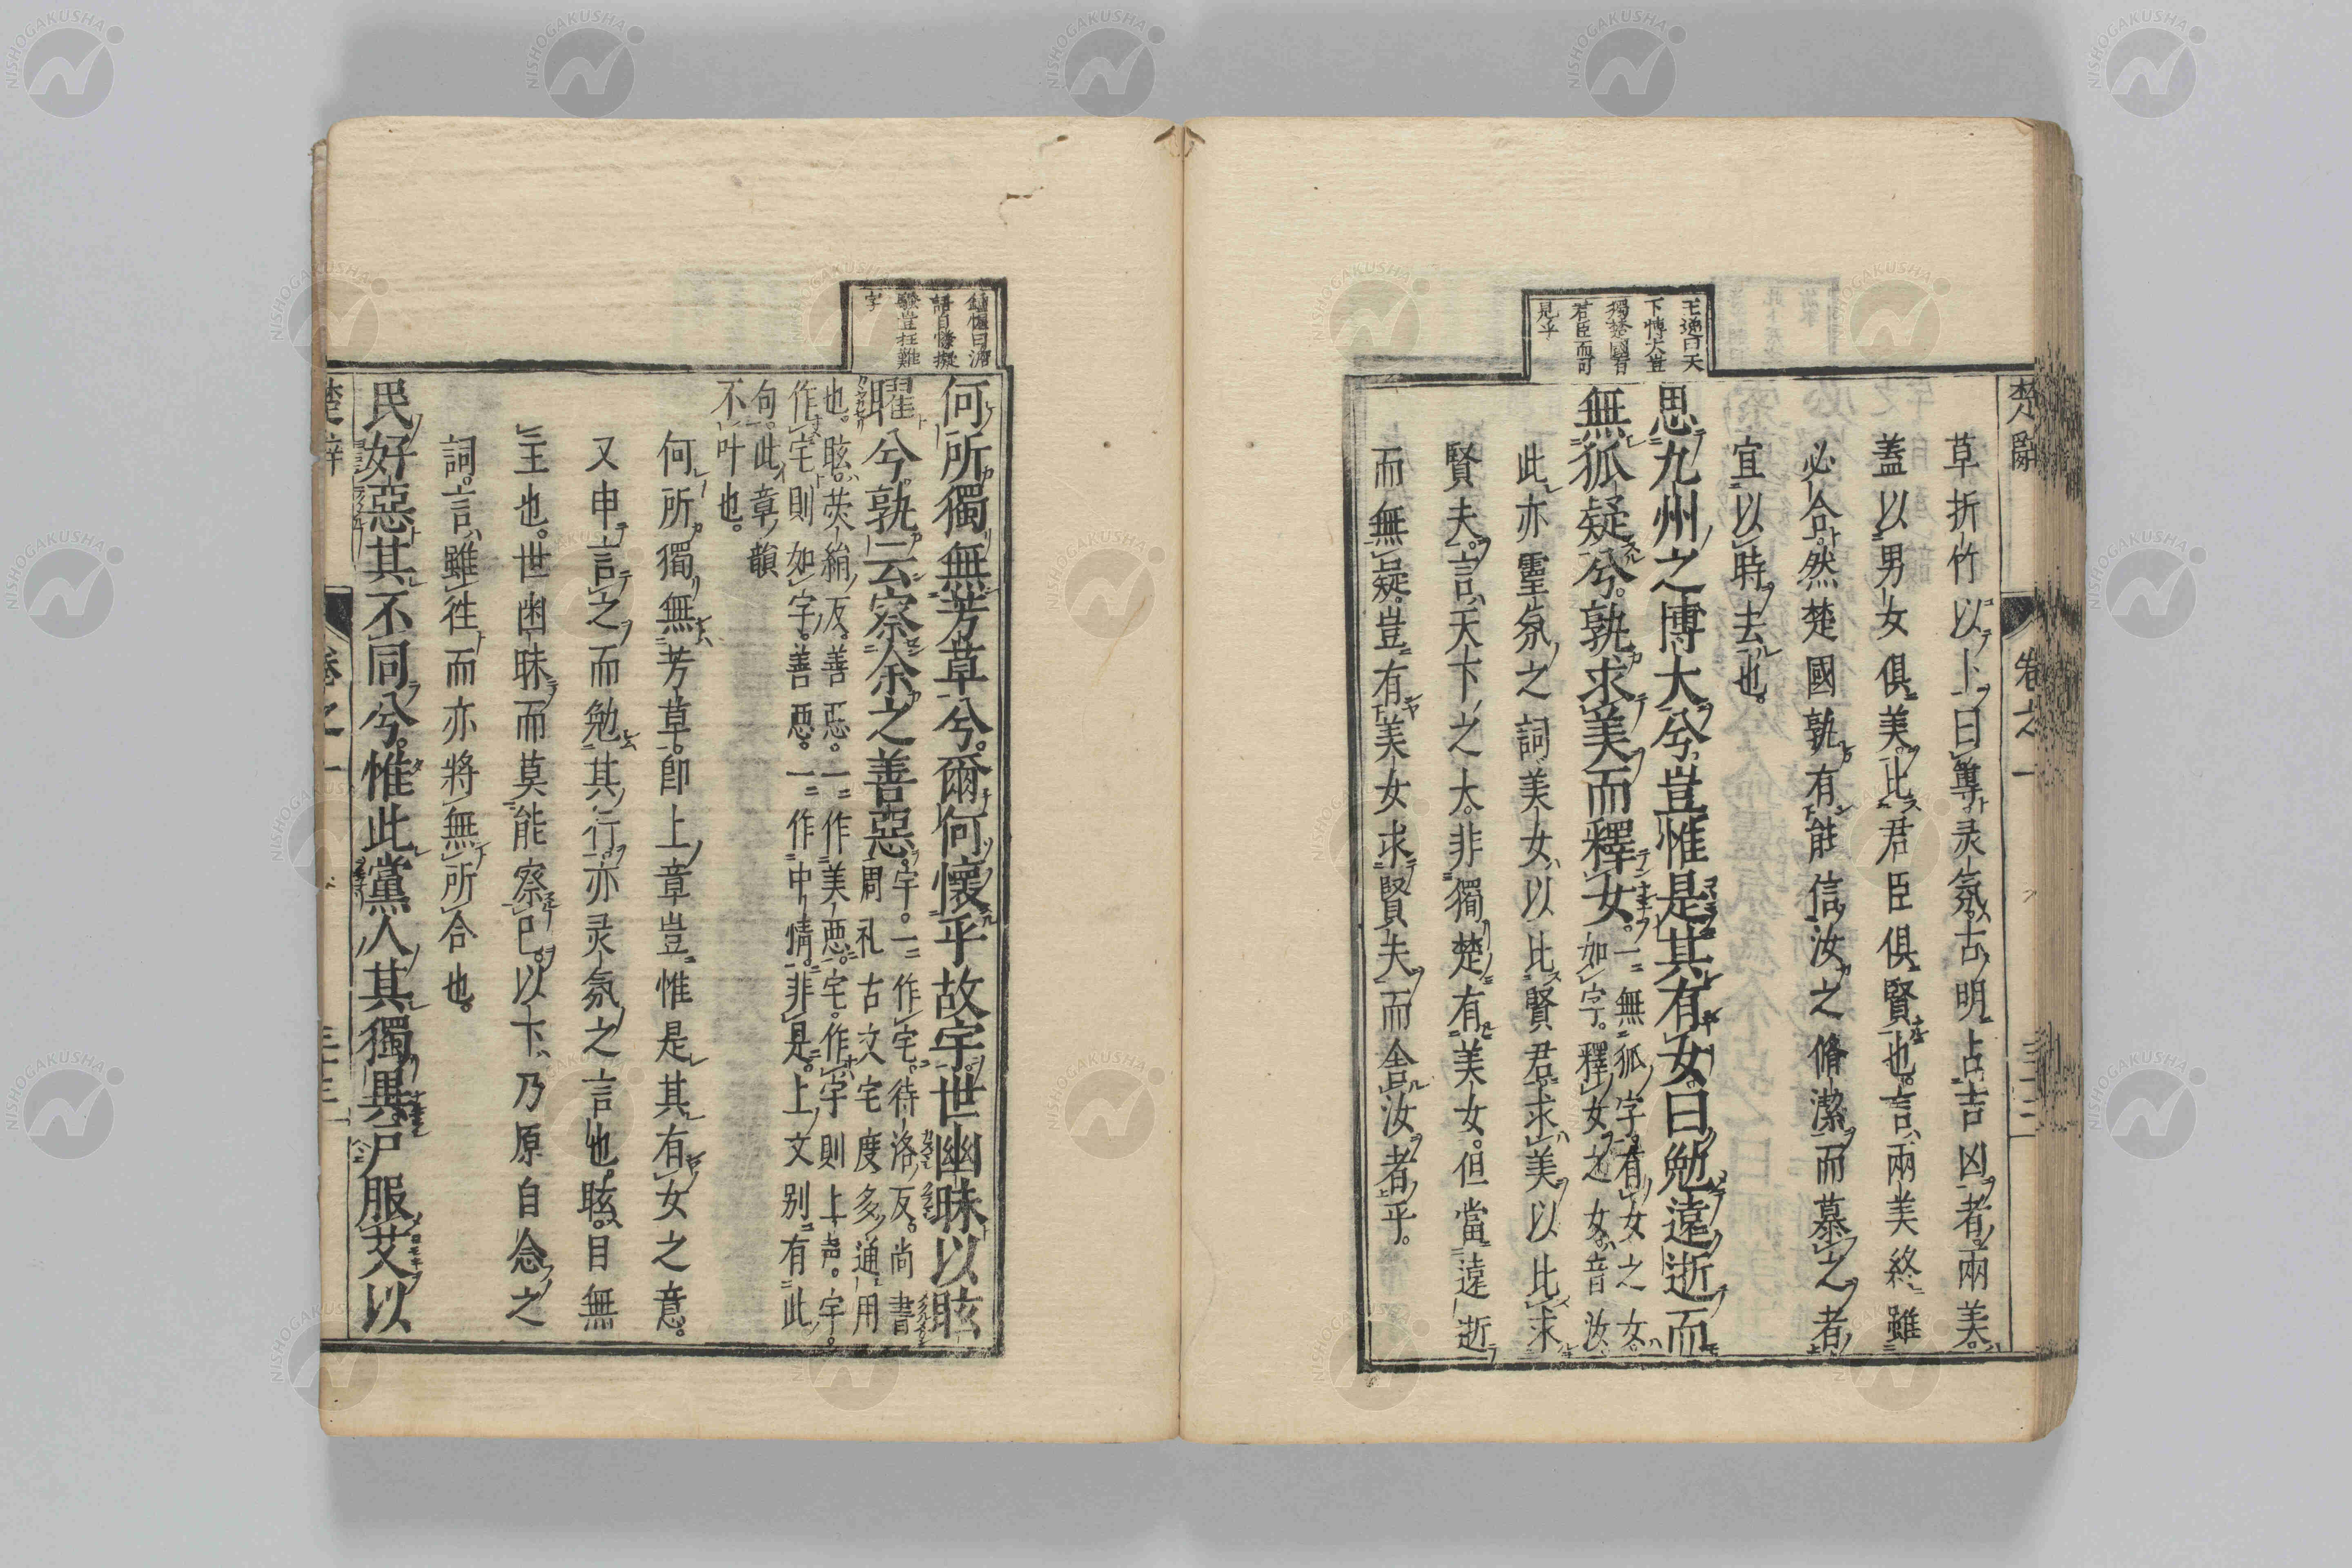 楚辭 卷之一
草折竹以卜曰蓴灵氛古明占吉凶者兩美
蓋以男女俱美此君臣俱賢也言兩美終雖
必合然楚國孰有能信汝之脩潔而慕之者
宜以時去也
王逸曰天
下博大豈
獨楚國有
君臣而可
見乎
思九州之博大兮豈惟是其有女曰勉遠逝而
無狐疑兮孰求美而釋女一無狐字有女之女
如字釋女之女音汝
此亦靈氛之詞美女以比賢君求美以比求
賢夫言天下之大非獨楚有美女但當遠逝
而無疑豈有美女求賢夫而舍汝者乎
語自
驗豈
字
何所獨無芳草兮爾何懷乎故宇世幽昧以眩
曜兮孰云察余之善惡宇一作宅待洛反尚書
周礼古文宅度多通用
也眩熒絹反善惡一作美惡宅作宇則上声宇
作宅則如字善惡一作中情非是上文別有此
句此章韻
不叶也
何所獨無芳草卽上章豈惟是其有女之意
又申言之而勉其行亦灵氛之言也眩目無
主也世幽昧而莫能察已以下乃原自念之
詞言雖徃而亦將無所合也
民好惡其不同兮惟此黨人其獨異戸服艾以
楚辭 卷之一